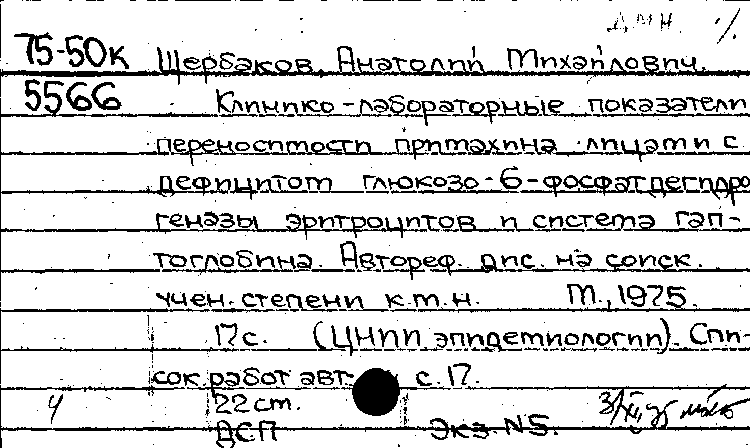 Д.М.Н.
75-50к Щербаков, Анатолий Михайлович.
5566 Клинико-лабораторные показатели
переносимости примахина лицами с
дефицитом глюкозо-6-фосфатдегидро
геназы эритроцитов и система гап-
тоглобина. Автореф. дис. на соиск.
учен. степени к.м.н. М., 1975.
17с. (ЦНИИ эпидемиологии). Спи-
сок работ авт. с.17.
22см.
ДСП Экз. N5.